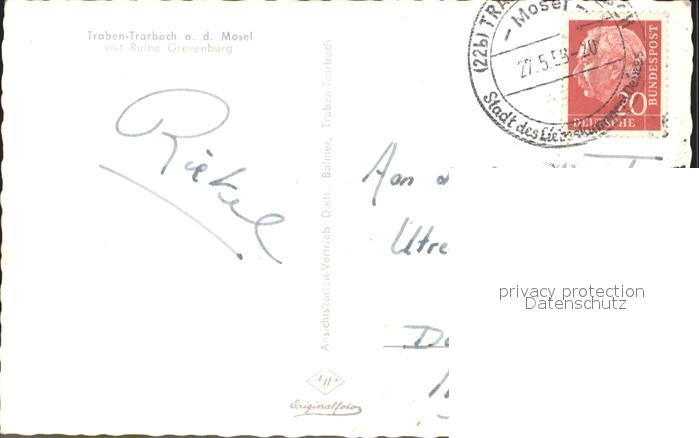 Traben-Trarbach a. d. Mosel
mit Ruine Grevenburg
(22b) TRA
- Mosel -
27.5.58-20
Stadt des
20
DEUTSCHE
BUNDESPOST
Riekel
Ansichtskarten-Vertrieb Dietr. Balmer, Traben-Trarbach
Aan d
Utre
Originalfoto
privacy protection
Datenschutz